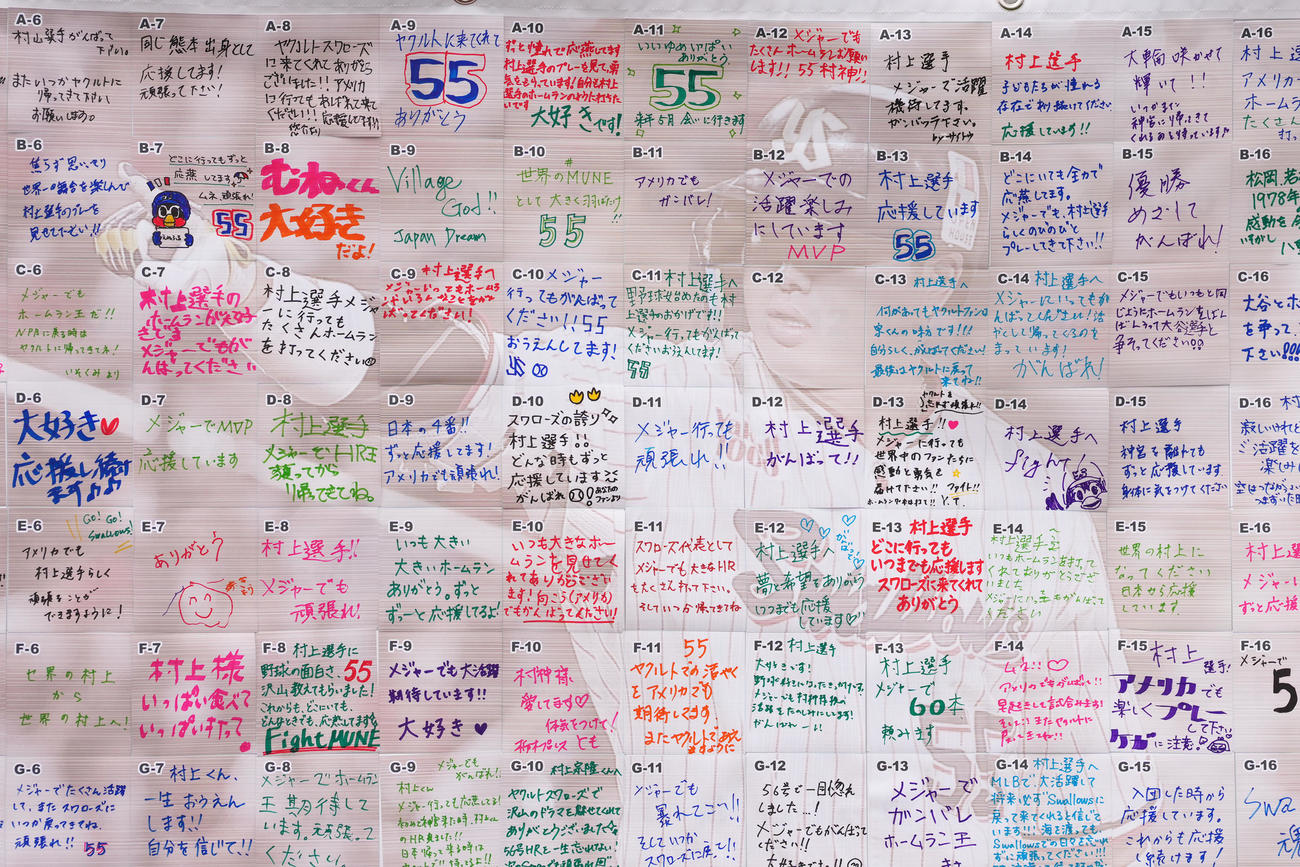 A-6
村山選手がんばって
下さい。
またいつかヤクルトに
帰ってきて下さい
お願いします。
A-7
同じ熊本出身として
応援してます!
頑張って下さい!
A-8
ヤクルトスワローズ
に来てくれてありがとう
ございました!!アメリカ
に行っても
ください!!応援してます!!
A-9
ヤクルトに来てくれて
55
ありがとう
A-10
ずっと憧れで応援してます
村上選手のプレーを見て、勇
気をもらっています!自分も村上
選手のホームランのように打ちた
いです
大好きです!
A-11
いいゆめいっぱい
ありがとう。
55
来年5月会いに行きます
A-12
メジャーでも
たくさんホームランお願い
します!! 55 村神!!
A-13
村上選手
メジャーで活躍
期待してます。
ガンバッテ下さい。
by サイトウ
A-14
村上選手
子どもたちが憧れる
存在であり続けてください
応援しています!!
A-15
大輪咲かせて
輝いて!!
いつかまた
神宮に帰ってきて
くれるのを待っています!!
A-16
村上
アメリカ
ホームラン
たくさん
打っ
B-6
焦らず思いっきり
世界一の舞台を楽しんで
村上選手のプレーを
見せて下さい!!
B-7
どこに行ってもずっと
応燕してます
ムネ、頑張れ!
55
B-8
むねくん
大好き
だよ!
B-9
Village
God!!
Japan Dream
B-10
#
世界のMUNE
として大きく羽ばたけ!!
55
B-11
アメリカでも
ガンバレ!
B-12
メジャーでの
活躍楽しみ
にしています
MVP
B-13
村上選手
応援しています
55
B-14
どこにいても全力で
応燕してます。
メジャーでも、村上選手
らしくのびのびと
プレーしてきて下さい!!
B-15
優勝
めざして
がんばれ!
B-16
松岡、若
1978年
感動を
C-6
メジャーでも
ホームラン王だ!!
NPBに戻る時は
ヤクルトに帰ってきてネ!
いそくみより
C-7
村上選手の
ホームランがえる子
きです
メジャーでもが
んばってください
C-8
村上選手メジャ
ーに行っても
たくさんホームラン
を打ってください
C-9
村上選手へ
メジャーにいっても
ばってください!
C-10
メジャー
行ってもがんばって
ください!!55
おうえんしてます!
YS
C-11
村上選手へ
野球を始めたのも村
上選手のおかげです!!
メジャー行ってもがんばって
くださいおうえんしてます!
55
C-12
C-13
村上選手へ
何があってもヤクルトファンは
宗くんの味方です!!!
自分らしく、がんばってください!
最後はヤクルトに戻って
来てね!!
C-14
村上選手へ
メジャーにいってもが
んばってください!活
やくして帰ってくるのを
まっています!
がんばれ!
C-15
メジャーでもいつもと同
じようにホームランをばん
ばんうって大谷選手と
争そってください!!!
C-16
大谷とホ
を争って、
下さい!!!
D-6
大好き
応援し続け
ます♪♪
D-7
メジャーでMVP
応援しています
D-8
村上選手
メジャーでHR王
獲ってから
帰ってきてね。
D-9
日本の4番!!
ずっと応援してます!
アメリカでも頑張れ!
D-10
スワローズの誇り
村上選手!!
どんな時もずっと
応援しています
がんばれ
あなたの
ファンより
D-11
メジャー行っても
頑張れ!!
D-12
村上選手
がんばって!!
D-13
ヤクルトを
村上選手!!
メジャーに行っても
世界中のファンたちに
感動と勇気を
届けてください!! ファイト!!
Y.T.
D-14
村上選手へ
fight!
D-15
村上選手
神宮を離れても
ずっと応援しています
身体に気をつけてください
D-16
村上
寂しいけれど
ご活躍を
楽しみ
空はつながって
E-6
GO! GO!
Swallows!
アメリカでも
村上選手らしく
頑張ることが
できますように!
E-7
ありがとう
E-8
村上選手!!
メジャーでも
頑張れ!
E-9
いつも大きい
大きいホームラン
ありがとう。ずっと
ずーっと応援してるよ!
E-10
いつも大きなホー
ムランを見せてく
れてありがとうござい
ます!向こう(アメリカ)
でもがんばってください!
E-11
スワローズ代表として
メジャーでも大きなHR
もたくさん打って下さい。
そしていつか帰ってきてね
E-12
村上選手へ
夢と希望をありがとう
いつまでも応援
しています♡
E-13
村上選手
どこに行っても
いつまでも応援します
スワローズに来てくれて
ありがとう
E-14
村上選手へ
いつもホームランを打って
くれてありがとうござ
いました
メジャーに行ってもがんばって
ください
E-15
世界の村上に
なってください
日本から応援
しています。
E-16
村上選
メジャー
ずっと応援
F-6
世界の村上
から
世界の村上へ!
F-7
村上様
いっぱい食べて
いっぱいうたって
F-8
村上選手に
野球の面白さ、55
沢山教えてもらいました!
これからも、どこにいても、
どんなときも、応燕してます
Fight MUNE
F-9
メジャーでも大活躍
期待しています!!
大好き
F-10
村神様
愛してます♡
体気をつけて!
栃木プロレスとも
F-11
55
ヤクルトでの活やく
をアメリカでも
期待してます。
またヤクルトであえ
ますように
F-12
村上選手
大好きです!
野球が好きになったきっかけです。
メジャーでも村神様の
活躍をたのしみにしてます!
がんばれーい!
F-13
村上選手
メジャーで
60本
頼みます
F-14
ムネ!!♡
アメリカでもがんばれ!!
早起きして試合みます!
そしてまたヤクルトに
戻ってきてね!!
F-15
村上選手!
アメリカでも
楽しくプレー
して下さい
ケガに注意!
F-16
メジャーで
5
G-6
メジャーでたくさん活躍
して、またスワローズに
いつか戻ってきてね。
頑張れ!! 55
G-7
村上くん、
一生おうえん
します!!
自分を信じて!!
G-8
メジャーでホームラン
王期待して
います。頑張って
ください。
G-9
メジャーでも
がんばれ!!
村上くん
メジャー行っても応燕してる!
G-10
村上宗隆くんへ
ヤクルトスワローズで
沢山のドラマを魅せてくれて
ありがとうございました
56号HRを一生忘れない!
G-11
メジャーでも
暴れてこい!!
そしていつか
スワローズに戻って!!
G-12
56号で一目惚れ
しました...!
メジャーでもがんばって
ください!!
G-13
メジャーで
ガンバレ
ホームラン王
G-14
村上選手へ
MLBで、大活躍して
将来必ずSwallowsに
戻って来てくれると信じて
います!!! 海を渡っても
Swallowsでの日々を忘れ
ずに頑張ってください!!!
G-15
入団した時から
応援しています。
これからも応援
し続けます!
G-16
Swa